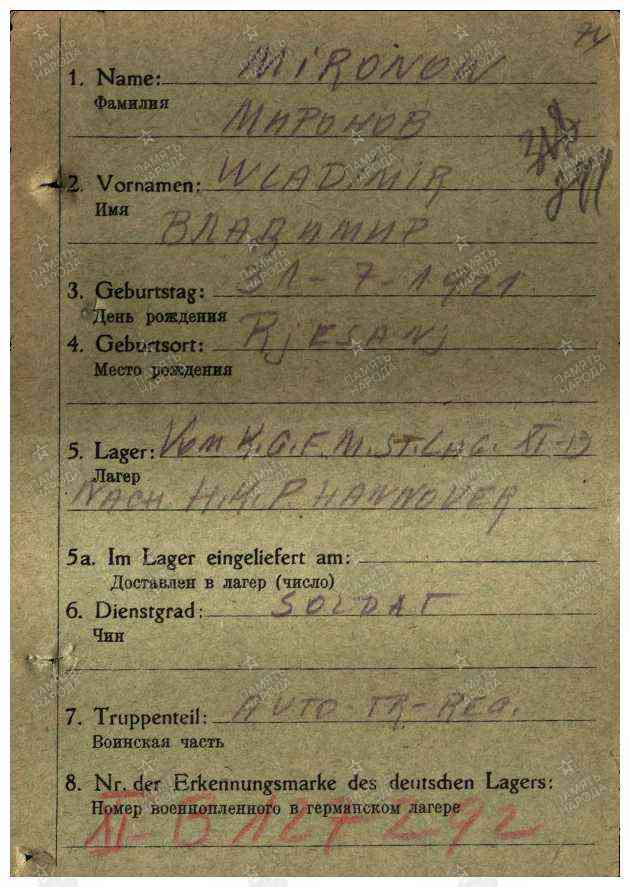 74
1. Name: MIRONOW
Фамилия
МИРОНОВ
2. Vornamen: WLADIMIR
Имя
ВЛАДИМИР
3. Geburtstag: 31-7-1921
День рождения
4. Geburtsort: RjESANj
Место рождения
5. Lager: Vom K.G.F.M.ST.LAG. XI-B
Лагер
NACH. H.K.P HANNOVER
5a. Im Lager eingeliefert am:
Доставлен в лагер (число)
6. Dienstgrad: SOLDAT
Чин
7. Truppenteil: AUTO-TR-REG.
Воинская часть
8. Nr. der Erkennungsmarke des deutschen Lagers:
Номер военнопленного в германском лагере
XI-B
ПАМЯТЬ НАРОДА